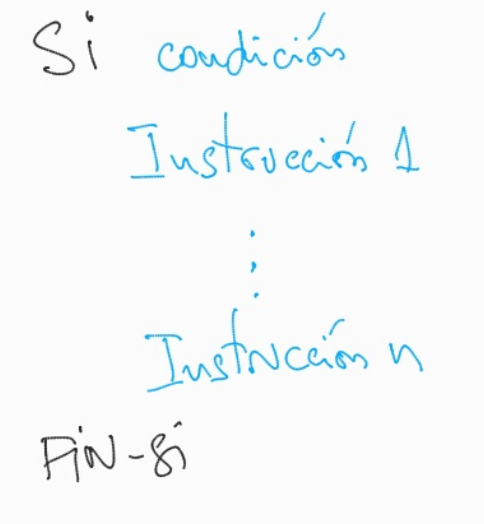 Si condición
Instrucción 1
⋮
Instrucción n
Fin-si